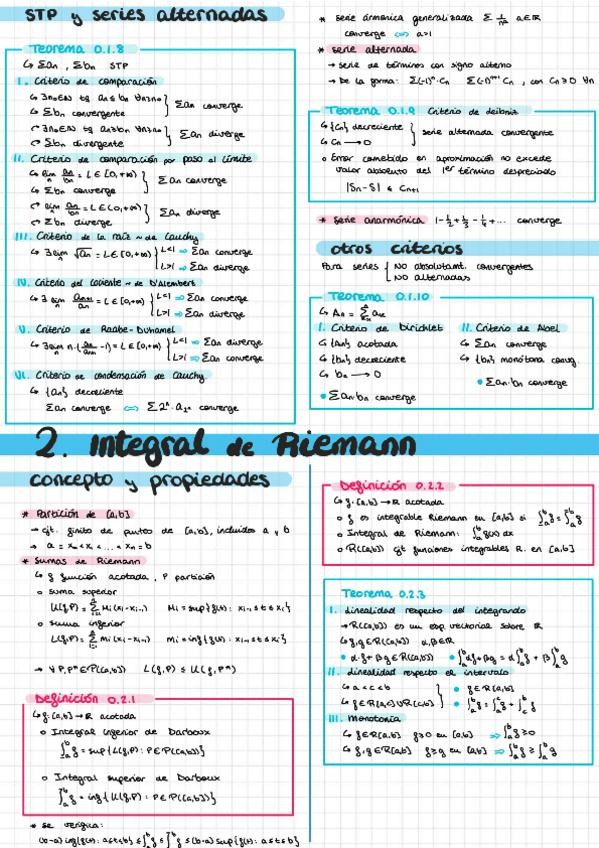 STP y series alternadas
Teorema 0.1.8
↳ Σan, Σbn STP
I. Criterio de comparación
↳ ∃n0∈N tq an≤bn ∀n≥n0
↳ Σbn convergente
} Σan converge
↳ ∃n0∈N tq an≥bn ∀n≥n0
↳ Σbn divergente
} Σan diverge
II. Criterio de comparación por paso al límite
↳ ∃lim an/bn = L∈[0,+∞)
↳ Σbn converge
} Σan converge
↳ ∃lim an/bn = L∈(0,+∞)
↳ Σbn diverge
} Σan diverge
III. Criterio de la raíz ~ de Cauchy
↳ ∃lim ⁿ√an = L∈[0,+∞) { L<1 ⇒ Σan converge
L>1 ⇒ Σan diverge
IV. Criterio del cociente ~ de D'Alembert
↳ ∃ lim an+1/an = L∈[0,+∞) { L<1 ⇒ Σan converge
L>1 ⇒ Σan diverge
V. Criterio de Raabe-Duhamel
↳ ∃lim n·(an/an+1 -1) = L∈[0,+∞) { L<1 ⇒ Σan diverge
L>1 ⇒ Σan converge
VI. Criterio de condensación de Cauchy
↳ {an} decreciente
Σan converge ⇔ Σ2ⁿ·a2ⁿ converge
* Serie armónica generalizada Σ 1/nᵃ a∈R
converge ⇔ a>1
* Serie alternada
→ Serie de términos con signo alterno
→ De la forma: Σ(-1)ⁿ·Cn Σ(-1)ⁿ⁺¹ Cn, con Cn≥0 ∀n
Teorema 0.1.9 Criterio de Leibnitz
↳ {Cn} decreciente
↳ Cn → 0
} serie alternada convergente
o Error cometido en aproximación no excede
valor absoluto del 1er término despreciado
|Sn-S| ≤ Cn+1
* Serie anarmónica 1-1/2+1/3-1/4+... converge
otros criterios
Para series { No absolutamt. convergentes
No alternadas
Teorema 0.1.10
↳ An = Σ ak
I. Criterio de Dirichlet
↳ {An} acotada
↳ {bn} decreciente
↳ bn → 0
• Σan·bn converge
II. Criterio de Abel
↳ Σan converge
↳ {bn} monótona convg.
• Σan·bn converge
2. Integral de Riemann
concepto y propiedades
* Partición de [a,b]
→ cjt. finito de puntos de [a,b], incluidos a y b
→ a = x0<x1<...<xn=b
* Sumas de Riemann
↳ f función acotada, P partición
o suma superior
U(f,P) = Σ Mi(xi-xi-1) Mi=sup{f(t): xi-1≤t≤xi}
o suma inferior
L(f,P) = Σ mi(xi-xi-1) mi=inf{f(t): xi-1≤t≤xi}
→ ∀P,P*∈P([a,b]) L(f,P) ≤ U(f,P*)
Definición 0.2.1
↳ f:[a,b]→R acotada
o Integral inferior de Darboux
∫f = sup{L(f,P): P∈P([a,b])}
o Integral superior de Darboux
∫f = inf{U(f,P): P∈P([a,b])}
* Se verifica:
(b-a)inf{f(t): a≤t≤b} ≤ ∫f ≤ ∫f ≤ (b-a)sup{f(t): a≤t≤b}
Definición 0.2.2
↳ f:[a,b]→R acotada
o f es integrable Riemann en [a,b] si ∫f = ∫f
o Integral de Riemann: ∫f(x) dx
o R([a,b]) cjt funciones integrables R. en [a,b]
Teorema 0.2.3
I. Linealidad respecto del integrando
→ R([a,b]) es un esp. vectorial sobre R
↳ f,g∈R([a,b]) α,β∈R
• α·f+βg∈R([a,b]) • ∫αf+βg = α∫f + β∫g
II. Linealidad respecto el intervalo
↳ a<c<b
↳ f∈R[a,c]∪R[c,b]
} • f∈R[a,b]
• ∫f = ∫f + ∫f
III. Monotonía
↳ f∈R[a,b] f≥0 en [a,b] ⇒ ∫f≥0
↳ f,g∈R[a,b] f≥g en [a,b] ⇒ ∫f ≥ ∫g